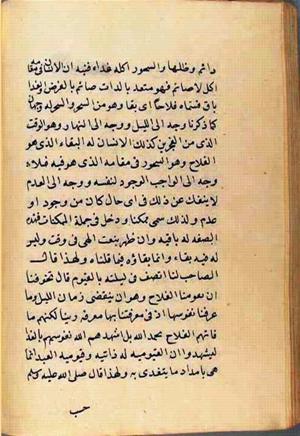 دائم وظلها والسحور اكله غذاء فنبه ان الانسان في بقا
اكل لا صائم فهو متغذ بالذات صائم بالعرض فالغذا
باق فسماه فلاحا اى بقا وهو من السحر والسحر له وجهان
كما ذكرنا وجه الى الليل ووجه الى النهار وهو الوقت
الذى بين الفجرين كذلك الانسان له البقاء الذى هو
الفلاح وهو السحور فى مقامه الذى هو فيه فله
وجه الى الواجب الوجود لنفسه ووجه الى العدم
لا ينفك عن ذلك فى اى حال كان من وجود او
عدم ولذلك سمى ممكنا ودخل فى جملة الممكنات فهذه
الصفة له باقيه وان ظهر بنعت الهى فى وقت وليس
له فيه بقاء وانما بقاؤه فيما قلناه ولهذا قال
الصاحب لنا اتصف فى ليلته بالقيوم قال تخوفنا
ان يفوتنا الفلاح وهو ان ينقضى زمان الليل وما
عرفنا نفوسنا اذ فى معرفتنا بها معرفة ربنا لكنهم ما
فاتهم الفلاح بحمد الله بل اشهدهم الله نفوسهم بالغذا
ليشهدوا ان القيوميه له ذاتيه وقيوميه العبد انما
هى بامداد ما يتغذى به ولهذا قال صلى الله عليه وسلم
حسب